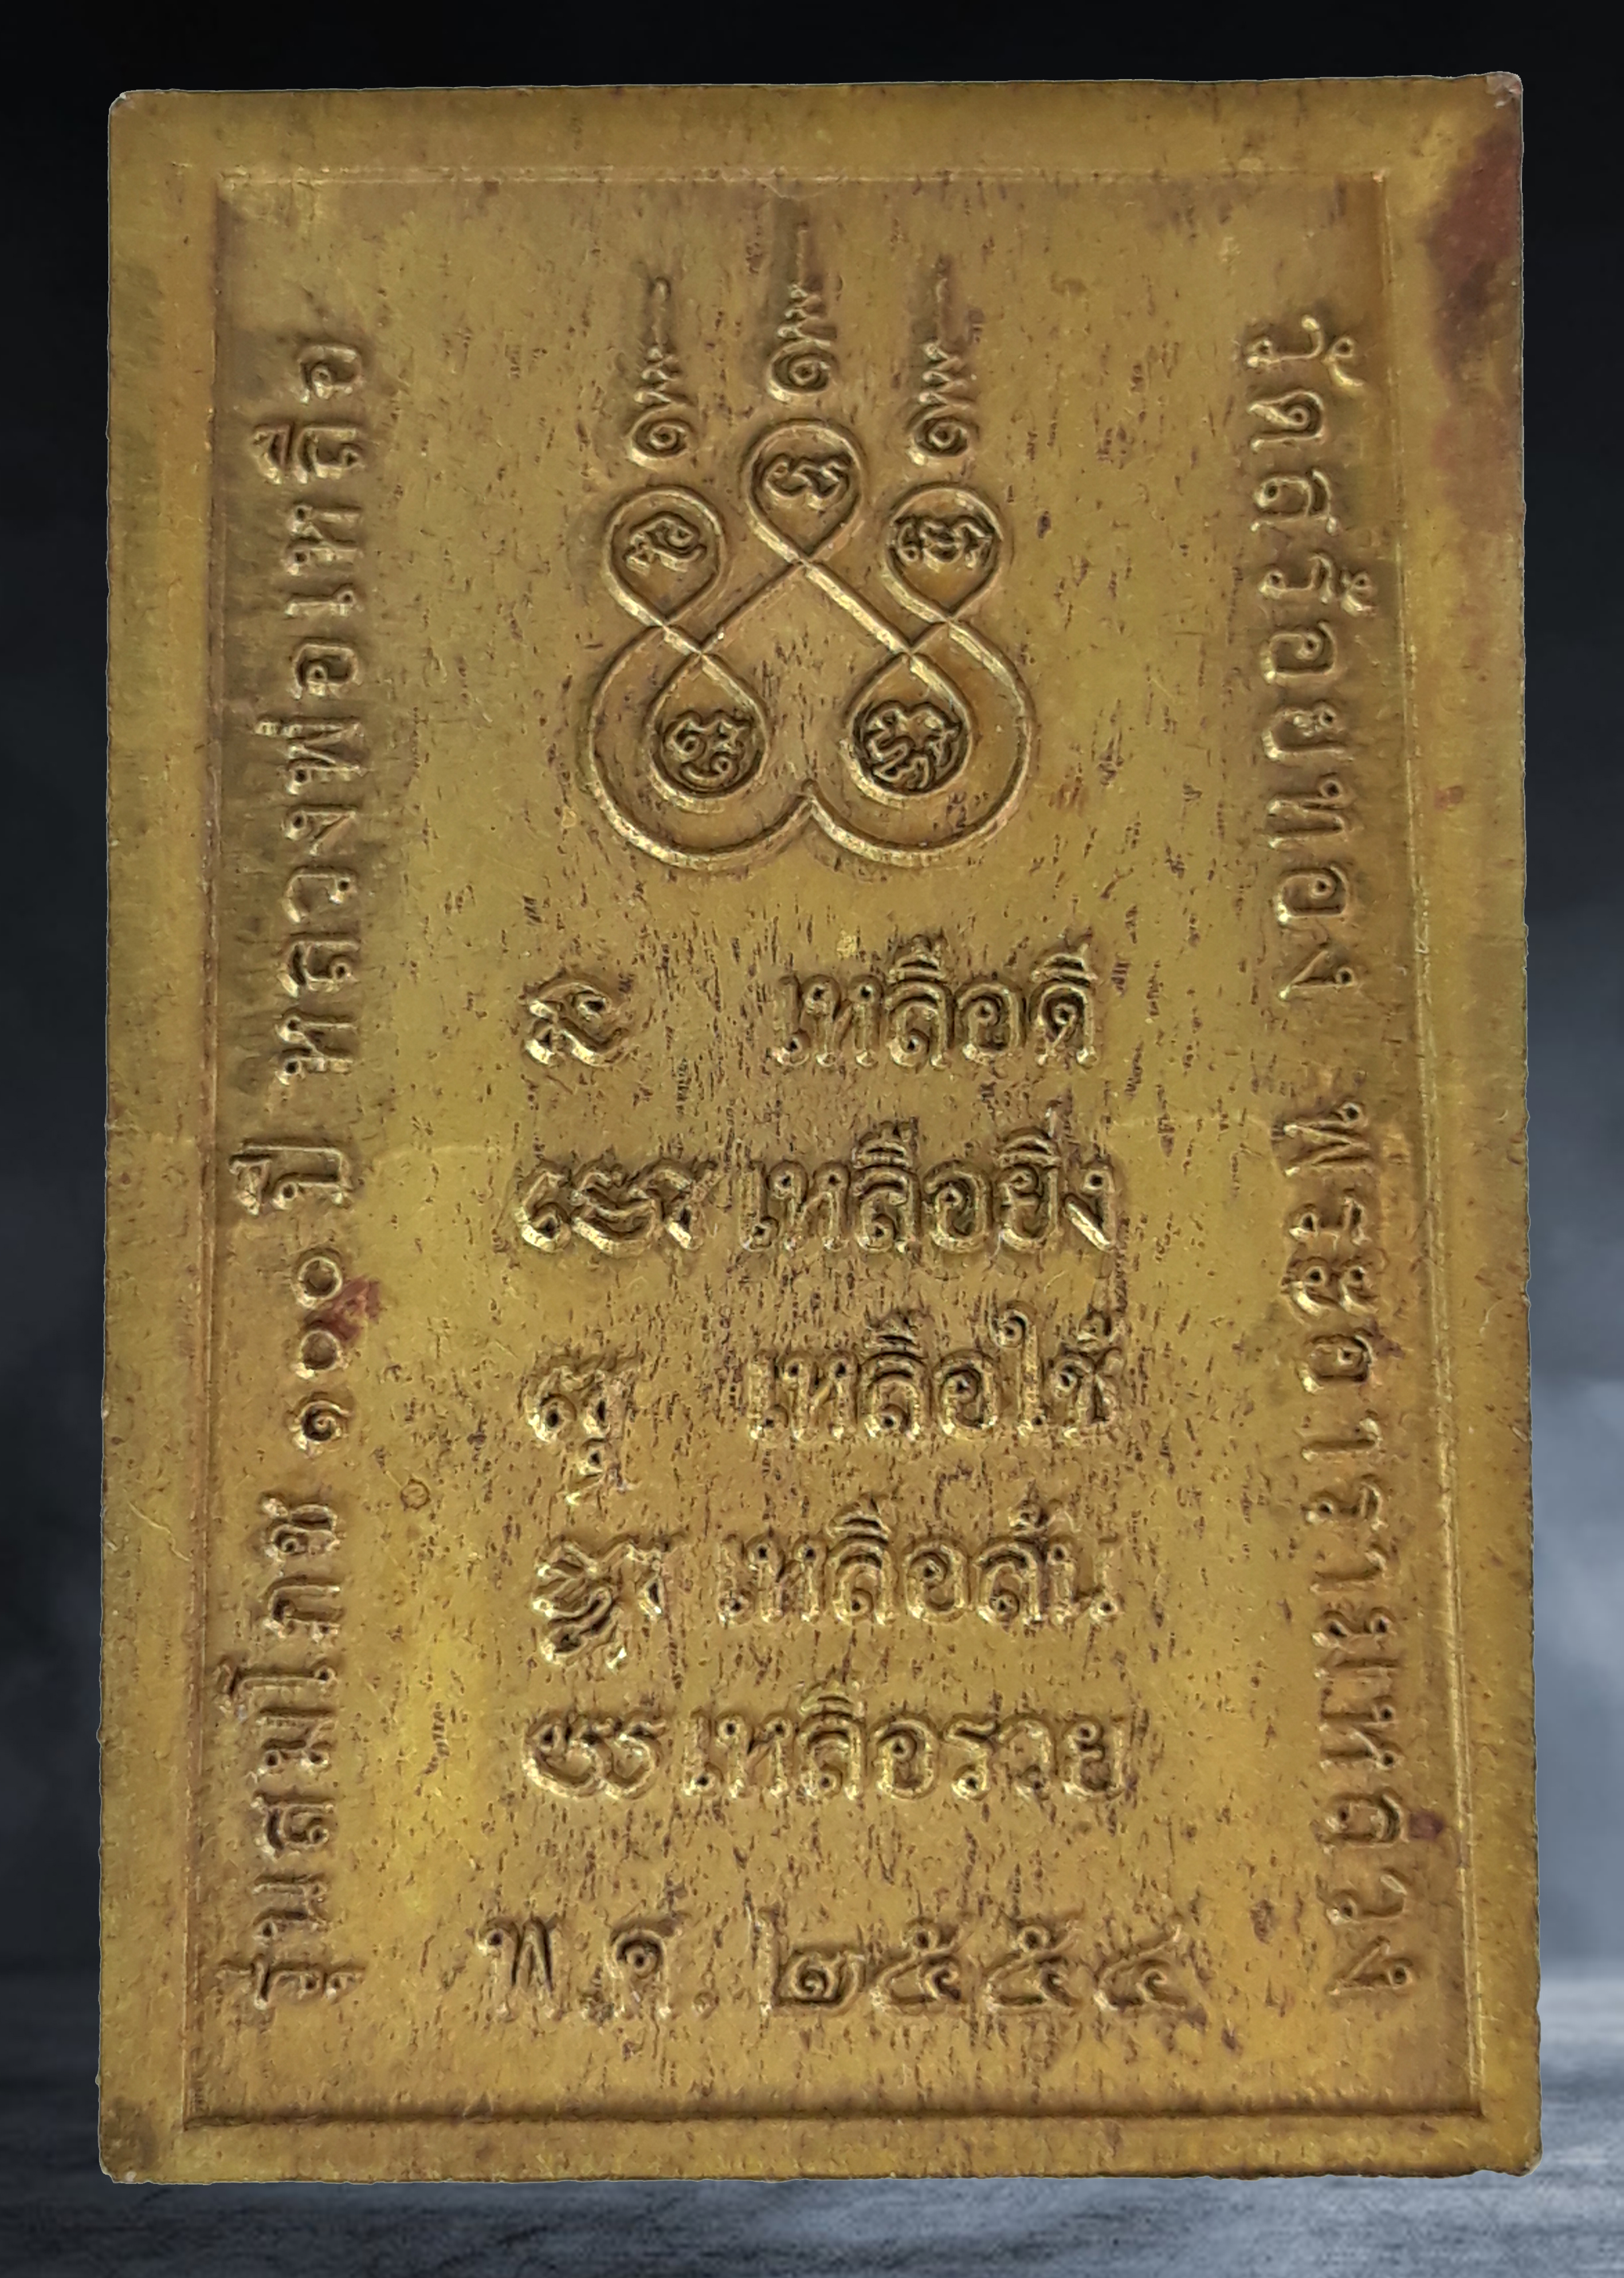 รุ่นสมโภช ๑๐๐ ปี หลวงพ่อเหลือ
เหลือดี
เหลือยิ่ง
เหลือใช้
เหลือล้น
เหลือรวย
พ.ศ. ๒๕๕๔
วัดสร้อยทอง พระอารามหลวง